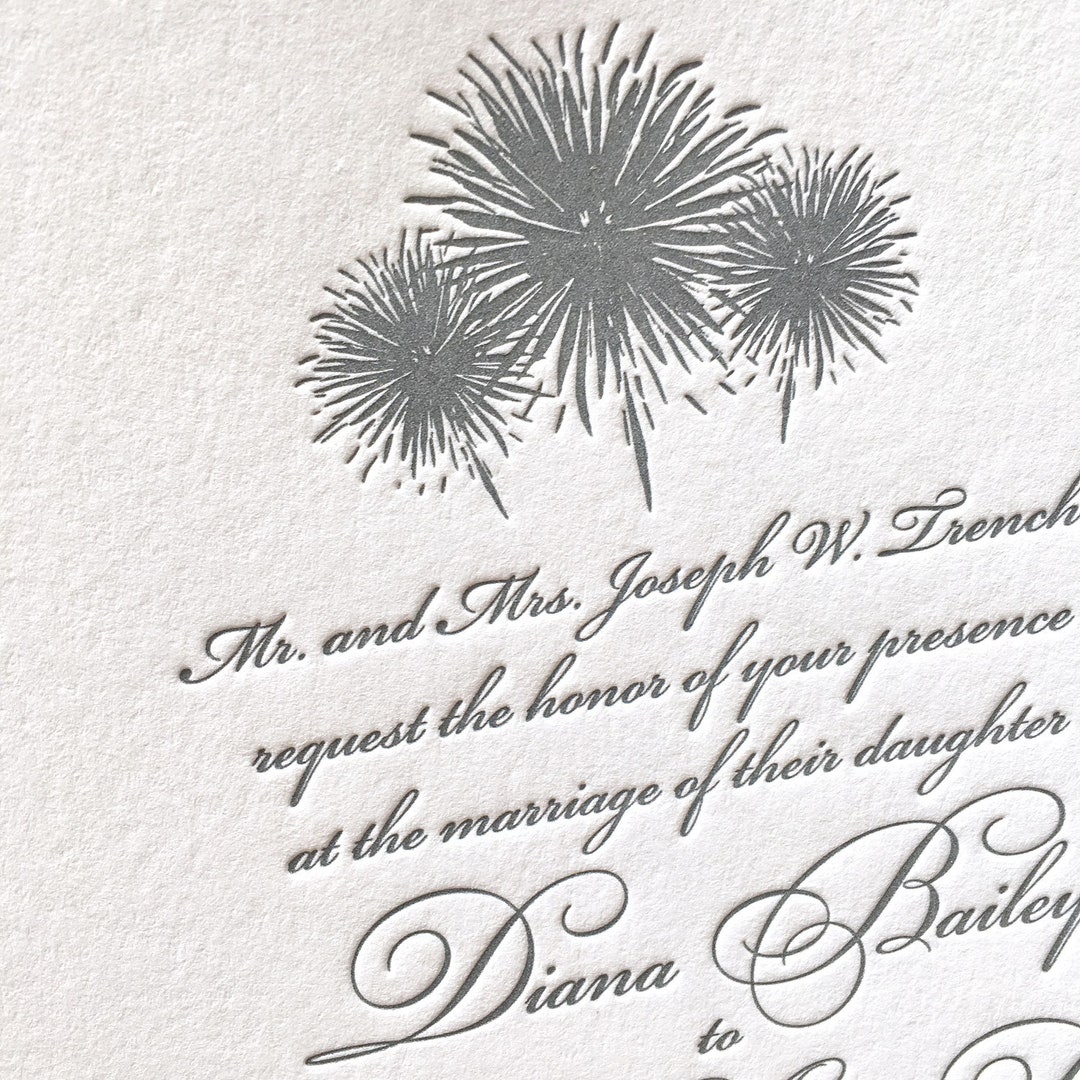 Mr. and Mrs. Joseph W. Trench
request the honor of your presence
at the marriage of their daughter
Diana Bailey
to